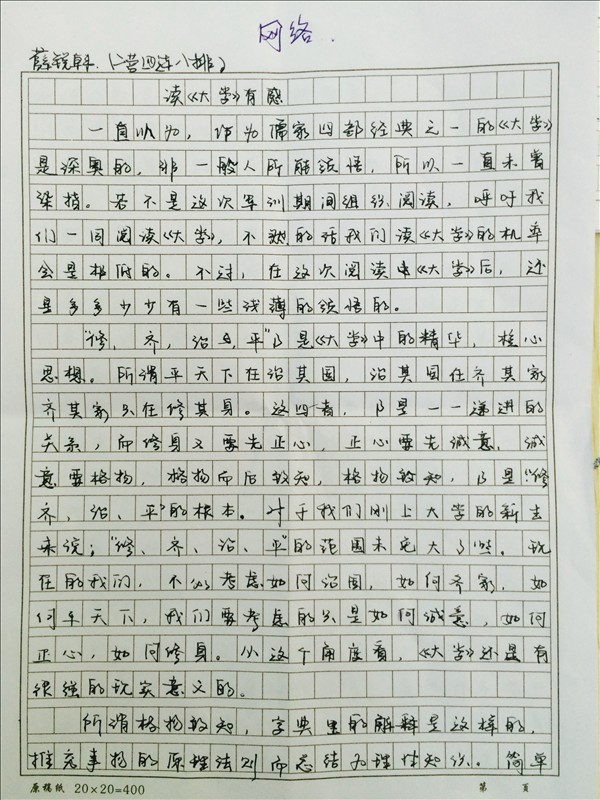 网络.
薛锐韩.（一营四连八排）
读《大学》有感
一直以为，作为儒家四部经典之一的《大学》
是深奥的，非一般人所能领悟，所以一直未尝
染指。若不是这次军训期间组织阅读，呼吁我
们一同阅读《大学》，不然的话我们读《大学》的机率
会是极低的。不过，在这次阅读中《大学》后，还
是多多少少有一些浅薄的领悟的。
“修，齐，治，平”乃是《大学》中的精华，核心
思想。所谓平天下在治其国，治其国在齐其家
齐其家又在修其身。这四者，乃是一一递进的
关系，而修身又要先正心，正心要先诚意，诚
意要格物，格物而后致知，格物致知，乃是“修
齐、治、平”的根本。对于我们刚上大学的新生
来说；“修、齐、治、平”的范围未免大了些。现
在的我们，不必考虑如何治国，如何齐家，如
何平天下，我们要考虑的只是如何诚意，如何
正心，如何修身。从这个角度看，《大学》还是有
很强的现实意义的。
所谓格物致知，字典里的解释是这样的，
推究事物的原理法则而总结为理性知识。简单
原稿纸 20×20=400
第 页